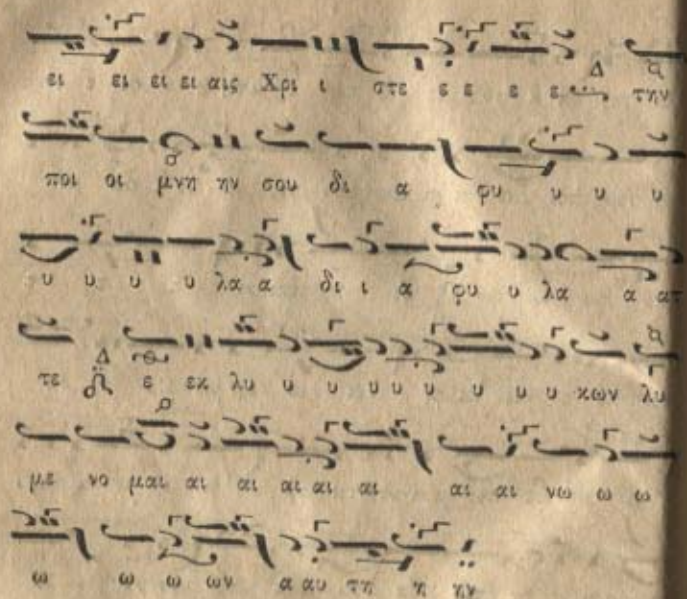 ει ει ει ει αις Χρι ι στε ε ε ε ε Δ την
ποι οι μνη ην σου δι α φυ υ υ υ
υ υ υ υ λα α δι ι α φυ υ λα α ατ
τε Δ ε εκ λυ υ υ υ υ υ υ υ υ κων λυ
με νο μαι αι αι αι αι αι αι αι νω ω ω
ω ω ω ων α αυ τη η ην